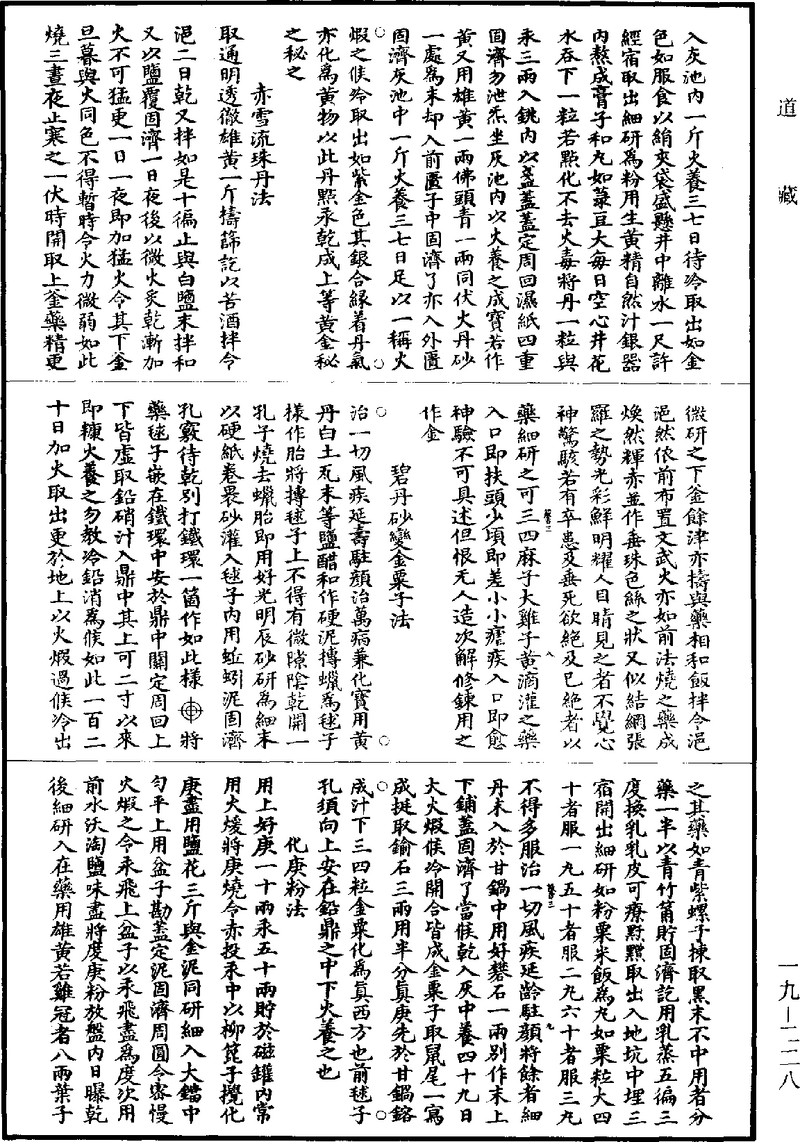 道藏
入灰池内一斤火養三七日待冷取出如金
色如服食以絹夾袋盛懸井中離水一尺許
經宿取出細研為粉用生黄精自然汁銀器
内熬成膏子和丸如菉豆大每日空心井花
水吞下一粒若點化不去火毒將丹一粒與
汞三兩入銚内以盞蓋蓋定周回濕紙四重
固濟勿泄炁坐灰池内以火養之成寳若作
黄又用雄黄一兩佛頭青一兩同伏火丹砂
一處為末却入前匱子中固濟了亦入外匱
固濟灰池中一斤火養三七日足以一秤火
煆之候冷取出如紫金色其銀合緣着丹氣
亦化為黄物以此丹點汞乾成上等黄金秘
之秘之
赤雪流珠丹法
取通明透徹雄黄一斤擣篩訖以苦酒拌令
浥二日乾又拌如是十徧止與白鹽末拌和
又以鹽覆固濟一日夜後以微火炙乾漸加
火不可猛更一日一夜即加猛火令其下釜
旦暮與火同色不得暫時令火力微弱如此
燒三晝夜止寒之一伏時開取上釜藥精更
微研之下釜餘津亦擣與藥相和飯拌令浥
浥然依前布置文武火亦如前法燒之藥成
煥然輝赤並作垂珠色絲之狀又似結網張
羅之勢光彩鮮明耀人目睛見之者不覺心
神驚駭若有卒患及垂死欲絶及已絶者以
藥細研之可三四麻子大雞子黄滴灌之藥
入口即扶頭少頃即差小小瘧疾入口即愈
神驗不可具述但恨无人造次解修鍊用之
作金
碧丹砂變金粟子法
治一切風疾延壽駐顔治萬病兼化寳用黄
丹白土瓦末等鹽醋和作硬泥摶蠟為毬子
樣作胎將摶毬子上不得有微隙陰乾開一
孔子燒去蠟胎即用好光明辰砂研為細末
以硬紙卷裹砂灌入毬子内用蚯蚓泥固濟
孔竅待乾别打鐵環一箇作如此樣 將
藥毬子嵌在鐵環中安於鼎中關定周回上
下皆虚取鉛硝汁入鼎中其上可二寸以來
即糠火養之勿教冷鉛消為候如此一百二
十日加火取出更於地上以火煆過候冷出
之其藥如青紫螺子揀取黑末不中用者分
藥一半以青竹筩貯固濟訖用乳蒸五徧三
度換乳乳皮可療㸃黶取出入地坑中埋三
宿開出細研如粉粟米飯為丸如粟粒大四
十者服一丸五十者服二丸六十者服三丸
不得多服治一切風疾延齡駐顔將餘者細
丹末入於甘鍋中用好礬石一兩别作末上
下鋪蓋固濟了當候乾入灰中養四十九日
大火煆候冷開合皆成金粟子取鼠尾一寫
成挺取鍮石三兩用半分真庚先於甘鍋鎔
成汁下三四粒金粟化為真西方也前毬子
孔須向上安在鉛鼎之中下火養之也
化庚粉法
用上好庚一十兩汞五十兩貯於磁罐内常
用火煖將庚燒令赤投汞中以柳篦子攪化
庚盡用鹽花三斤與金泥同研細入大鐺中
勻平上用盆子勘蓋定泥固濟周圓令密慢
火煆之令汞飛上盆子以汞飛盡為度次用
前水沃淘鹽味盡將度庚粉放盤内日曝乾
後細研入在藥用雄黄若雞冠者八兩葉子
一九—二二八